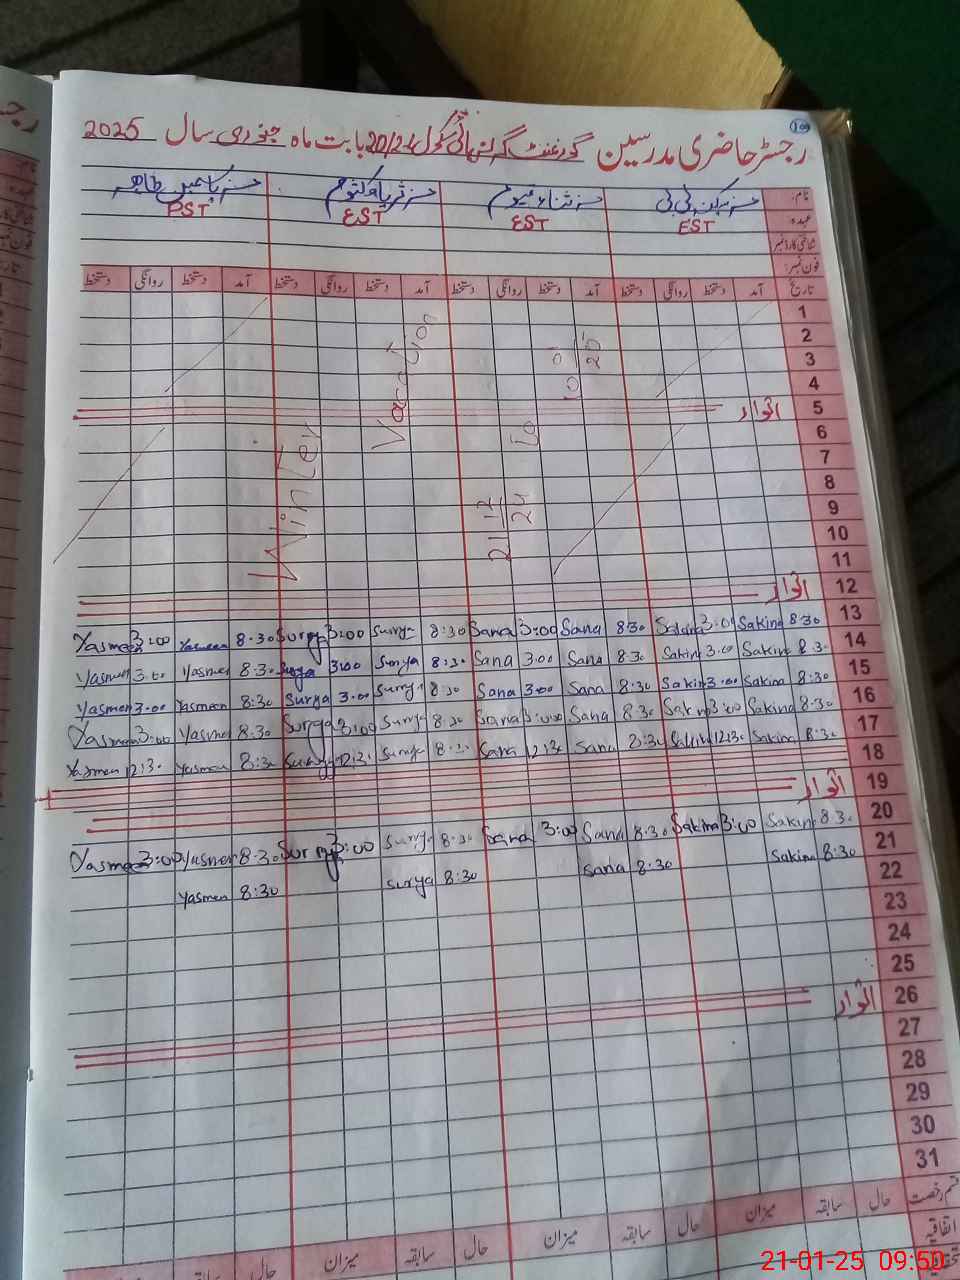 رجسٹر حاضری مدرسین گورنمنٹ گرلز ہائی سکول 20/2L بابت ماہ جنوری سال 2025
نام: مسز سکینہ بی بی مسز ثناء قیوم مسز ثریا کلثوم مسز یاسمین طاہرہ
عہدہ EST EST EST PST
شناختی کارڈ نمبر
فون نمبر:
تاریخ آمد دستخط روانگی دستخط آمد دستخط روانگی دستخط آمد دستخط روانگی دستخط آمد دستخط روانگی دستخط
1
2
3
4
5 اتوار
6
7
8
9
10
11
Winter Vacation
21-12/24 to 10-01/25
12 اتوار
13 8:30 Sakina 3:00 Sakina 8:30 Sana 3:00 Sana 8:30 Surya 3:00 Surya 8:30 Yasmeen 3:00 Yasmeen
14 8:30 Sakina 3:00 Sakina 8:30 Sana 3:00 Sana 8:30 Surya 3:00 Surya 8:30 Yasmen 3:00 Yasmen
15 8:30 Sakina 3:00 Sakina 8:30 Sana 3:00 Sana 8:30 Surya 3:00 Surya 8:30 Yasmeen 3:00 Yasmen
16 8:30 Sakina 3:00 Sakina 8:30 Sana 3:00 Sana 8:30 Surya 3:00 Surya 8:30 Yasmen 3:00 Yasmen
17 8:30 Sakina 12:30 Sakina 8:30 Sana 12:30 Sana 8:30 Surya 12:30 Surya 8:30 Yasmen 12:30 Yasmen
18
19 اتوار
20 8:30 Sakina 3:00 Sakina 8:30 Sana 3:00 Sana 8:30 Surya 3:00 Surya 8:30 Yasmen 3:00 Yasmeen
21 8:30 Sakina 8:30 Sana 8:30 Surya 8:30 Yasmen
22
23
24
25
26 اتوار
27
28
29
30
31
قسم رخصت حال سابقہ میزان حال سابقہ میزان حال سابقہ میزان حال سابقہ
اتفاقیہ
21-01-25 09:50